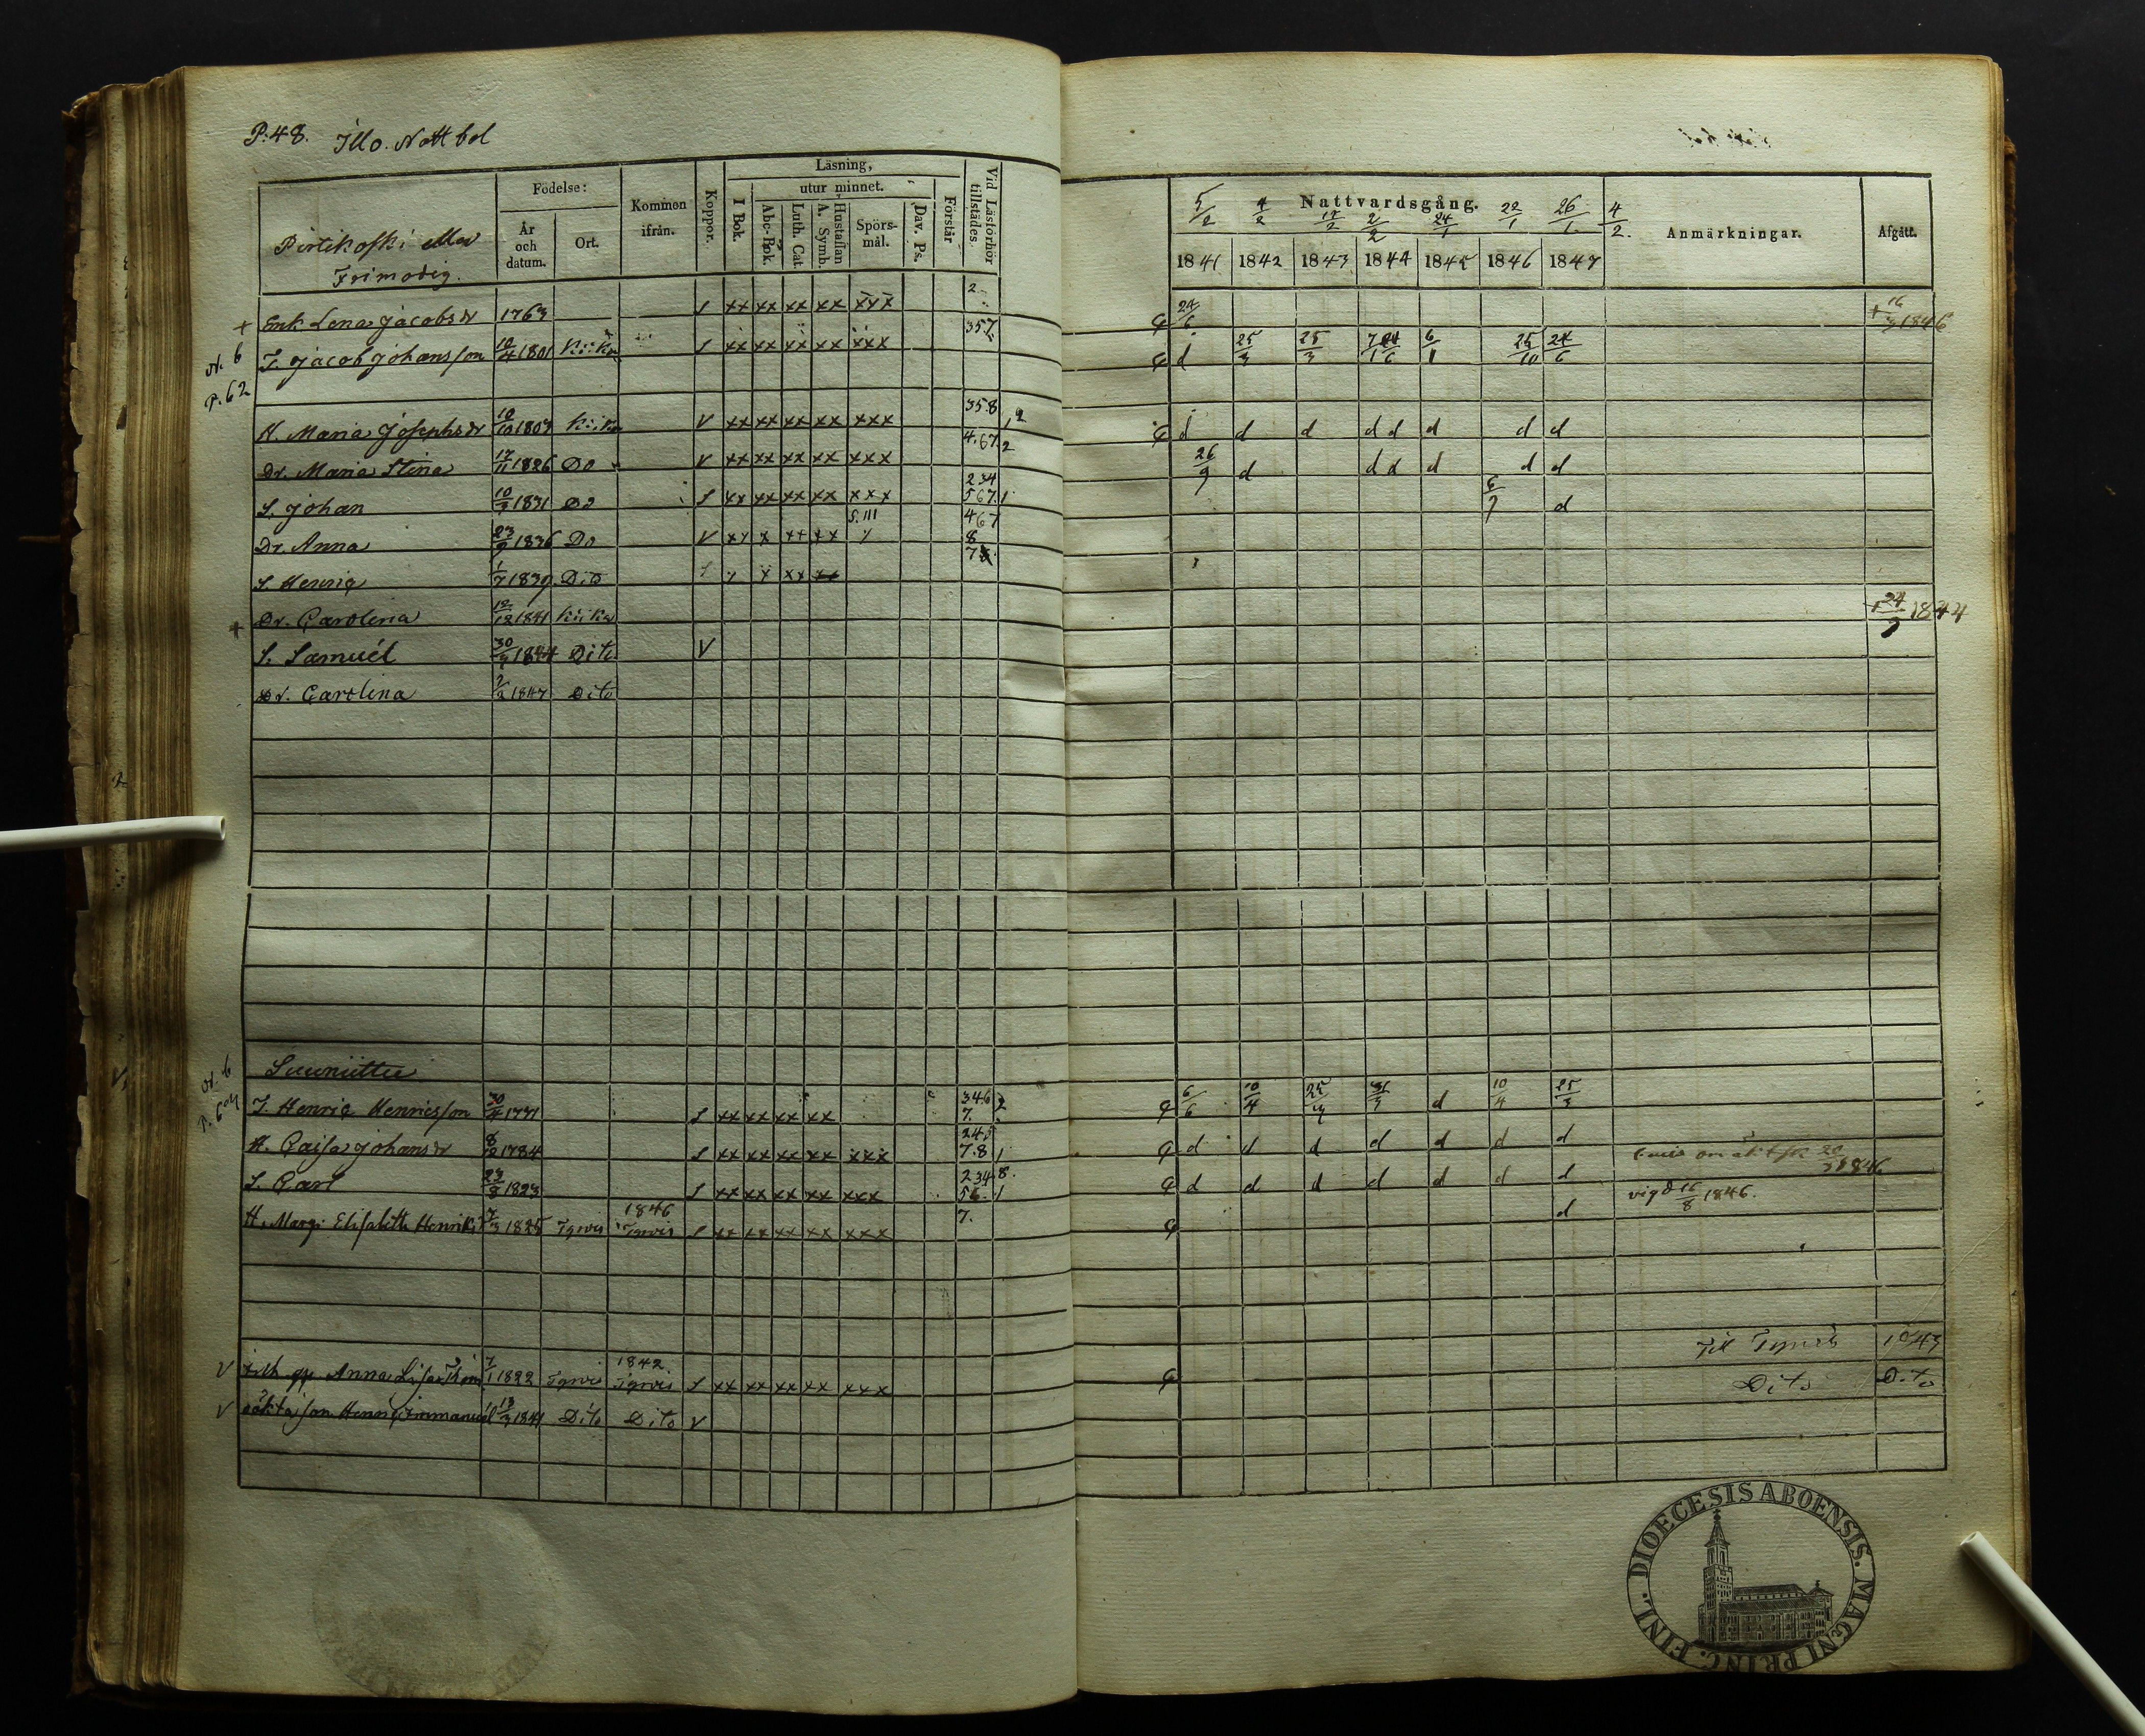 P. 48. Illo. Nattbol
Födelse:
År och datum.
Ort.
Kommen ifrån.
Koppor.
Läsning,
I Bok.
utur minnet.
Abc-Bok.
Luth. Cat.
Hustaflan A. Symb.
Spörs-mål.
Dav. Ps.
Förstår
Vid Läsförhör tillstädes.
Nattvardsgång.
5/2 4/2 17/2 2/2 24/1 22/1 26/1 4/2.
1841 1842 1843 1844 1845 1846 1847
Anmärkningar.
Afgått.
Pirtikoski
Frimodig.
+ Enk Lena Jacobsdr 1763 S xx xx xx xx xxx 2 24/6 + 16/3 1846
N. 6 J. Jacob Johansson 10/4 1801 Kiika S xx xx xx xx xxx 357. d 25/3 25/3 6/1 25/10 24/6
P. 62
H. Maria Josephsdr 10/10 1803 Kiika V xx xx xx xx xxx 358 d d d d d d d d
Dr. Maria Stina 17/11 1826 Do V xx xx xx xx xxx 4.67. 2 26/9 d d d d d d
S. Johan 10/3 1831 Do S xx xx xx xx xxx 234 567. 1 d
Dr. Anna 23/9 1836 Do V xx x xx xx 467 8
S. Henriq 1/7 1839 Dito xx xx 7
+ Dr. Carolina 12/12 1841 Kiika + 24/9 1844
S. Samuél 30/9 1844 Dito V
Dr. Carolina 2/2 1847 Dito
N. 6
J. Henriq Henricsson 30/4 1771 S xx xx xx xx 346 7. 2 6/6 10/4 25/4 31/3 d 10/4 25/3
H. Caisa Johansdr 8/12 1784 S xx xx xx xx xxx 245 7.8 1 d d d d d d d
S. Carl 23/8 1823 S xx xx xx xx xxx 2348. 56. 1 d d d d d d d 1846
H. Marg: Elisabeth Henriks 7/3 1825 Tyrvis 1846 Tyrvis S xx xx xx xx xxx 7. d vigd 16/8 1846.
V Anna Lisa 7/1 1822 Tyrvis 1842 Tyrvis S xx xx xx xx xxx Till Tyrvis 1843
V oäkta son Henriq Immanuél 13/3 1841 Dito Dito V Dito Dito
DIOECESIS ABOENSIS. MAGNI PRINC. FINL.